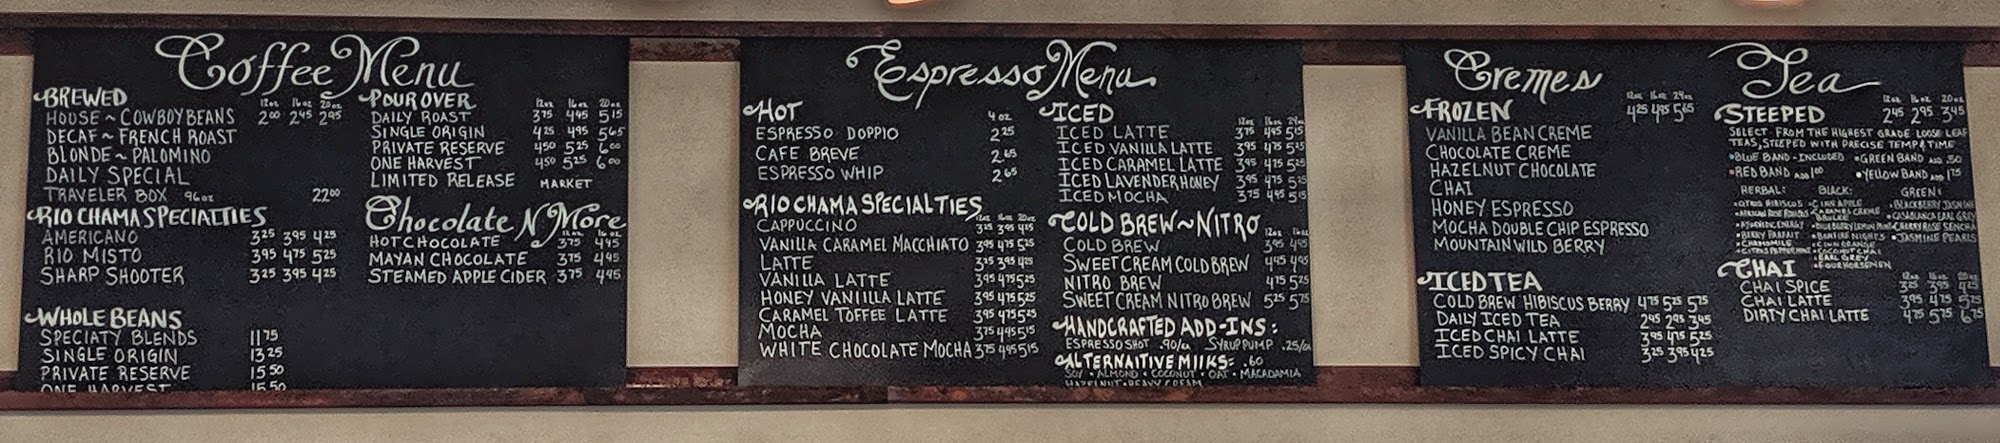 Coffee Menu
BREWED 12oz 16oz 20oz
HOUSE ~ COWBOY BEANS 2.00 2.45 2.95
DECAF ~ FRENCH ROAST
BLONDE ~ PALOMINO
DAILY SPECIAL
TRAVELER BOX 96oz 22.00
RIO CHAMA SPECIALTIES
AMERICANO 3.25 3.95 4.25
RIO MISTO 3.95 4.75 5.25
SHARP SHOOTER 3.25 3.95 4.25
WHOLE BEANS
SPECIATY BLENDS 11.75
SINGLE ORIGIN 13.25
PRIVATE RESERVE 15.50
ONE HARVEST 15.50
POUR OVER 12oz 16oz 20oz
DAILY ROAST 3.75 4.45 5.15
SINGLE ORIGIN 4.25 4.95 5.65
PRIVATE RESERVE 4.50 5.25 6.00
ONE HARVEST 4.50 5.25 6.00
LIMITED RELEASE MARKET
Chocolate N More
12oz 16oz
HOT CHOCOLATE 3.75 4.45
MAYAN CHOCOLATE 3.75 4.95
STEAMED APPLE CIDER 3.75 4.95
Espresso Menu
HOT 4oz
ESPRESSO DOPPIO 2.25
CAFE BREVE 2.65
ESPRESSO WHIP 2.65
RIO CHAMA SPECIALTIES 12oz 16oz 20oz
CAPPUCCINO 3.25 3.95 4.25
VANILLA CARAMEL MACCHIATO 3.95 4.75 5.25
LATTE 3.25 3.95 4.25
VANILLA LATTE 3.95 4.75 5.25
HONEY VANIILLA LATTE 3.95 4.75 5.25
CARAMEL TOFFEE LATTE 3.95 4.75 5.25
MOCHA 3.75 4.45 5.15
WHITE CHOCOLATE MOCHA 3.75 4.45 5.15
ICED 12oz 16oz 24oz
ICED LATTE 3.75 4.45 5.15
ICED VANILLA LATTE 3.95 4.75 5.25
ICED CARAMEL LATTE 3.95 4.75 5.25
ICED LAVENDER HONEY 3.95 4.75 5.25
ICED MOCHA 3.75 4.45 5.15
COLD BREW ~ NITRO 12oz 16oz
COLD BREW 3.95 4.45
SWEET CREAM COLD BREW 4.45 4.95
NITRO BREW 4.75 5.25
SWEET CREAM NITRO BREW 5.25 5.75
HANDCRAFTED ADD-INS:
ESPRESSO SHOT .90/ea SYRUP PUMP .25/ea
ALTERNAITIVE MIlKS: .60
SOY • ALMOND • COCONUT • OAT • MACADAMIA
HAZELNUT • HEAVY CREAM
Cremes
FROZEN 12oz 16oz 24oz
4.25 4.95 5.65
VANILLA BEAN CREME
CHOCOLATE CREME
HAZELNUT CHOCOLATE
CHAI
HONEY ESPRESSO
MOCHA DOUBLE CHIP ESPRESSO
MOUNTAIN WILD BERRY
ICED TEA
COLD BREW HIBISCUS BERRY 4.75 5.25 5.75
DAILY ICED TEA 2.45 2.95 3.45
ICED CHAI LATTE 3.95 4.75 5.25
ICED SPICY CHAI 3.25 3.95 4.25
Tea
12oz 16oz 20oz
STEEPED 2.45 2.95 3.45
SELECT FROM THE HIGHEST GRADE LOOSE LEAF
TEAS, STEEPED WITH PRECISE TEMP & TIME
• BLUE BAND - INCLUDED • GREEN BAND ADD .50
• RED BAND ADD 1.00 • YELLOW BAND ADD 1.75
HERBAL: BLACK: GREEN:
• CITRUS HIBISCUS • CINN APPLE • BLACKBERRY JASMINE
CARAMEL CREME • CASABLANCA EARL GREY
• CHERRY ROSE SENCHA
• BERRY PARFAIT • BONFIRE NIGHTS • JASMINE PEARLS
• CHAMOMILE • CINN ORANGE
• CITRUS PEPPERMINT • COCONUT CHAI
• EARL GREY
• FOUR HORSEMEN
CHAI 12oz 16oz 20oz
CHAI SPICE 3.25 3.95 4.25
CHAI LATTE 3.95 4.75 5.25
DIRTY CHAI LATTE 4.75 5.75 6.75